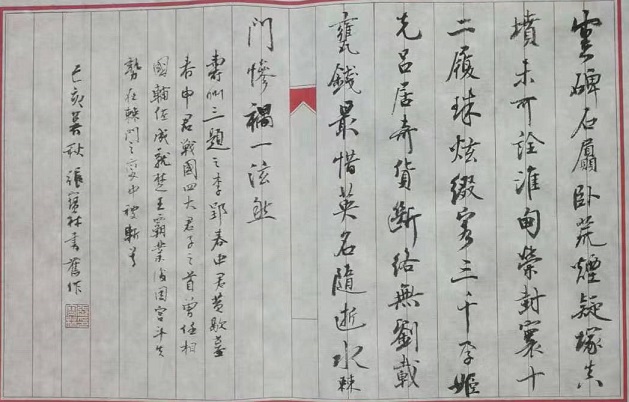 雲碑石屭卧荒煙疑塚真
墳未可詮淮甸榮封寰十
二履珠炫綴客三千孕姬
先呂居奇貨斷絡無劉載
甕錢最惜英名隨逝水棘
門慘禍一泫然
壽州三題之李郢春申君黄歇墓
春申君戰國四大君子之首曾任相
國輪侄成就楚王霸業後因宫斗失
勢在棘門之變中被斬首
己亥吴秋張寶林書舊作